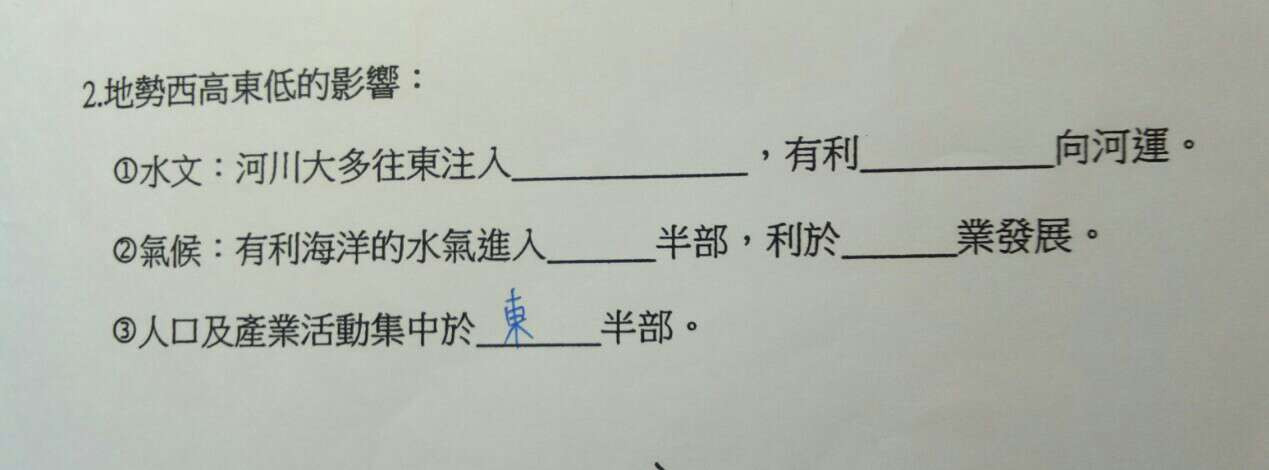 2.地勢西高東低的影響：
①水文：河川大多往東注入____________，有利__________向河運。
②氣候：有利海洋的水氣進入______半部，利於______業發展。
③人口及產業活動集中於__東____半部。